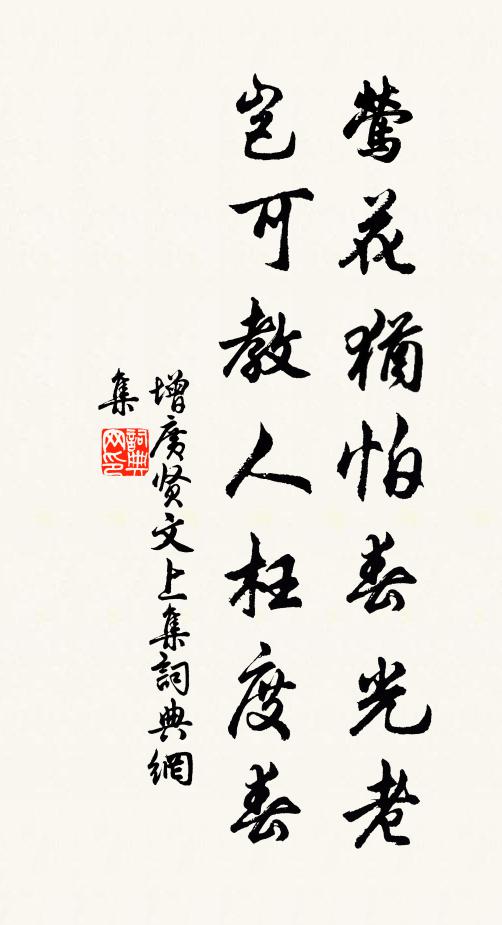 鶯花猶怕春光老
豈可教人枉度春
增廣贤文上集詞典網
集
詞典网印